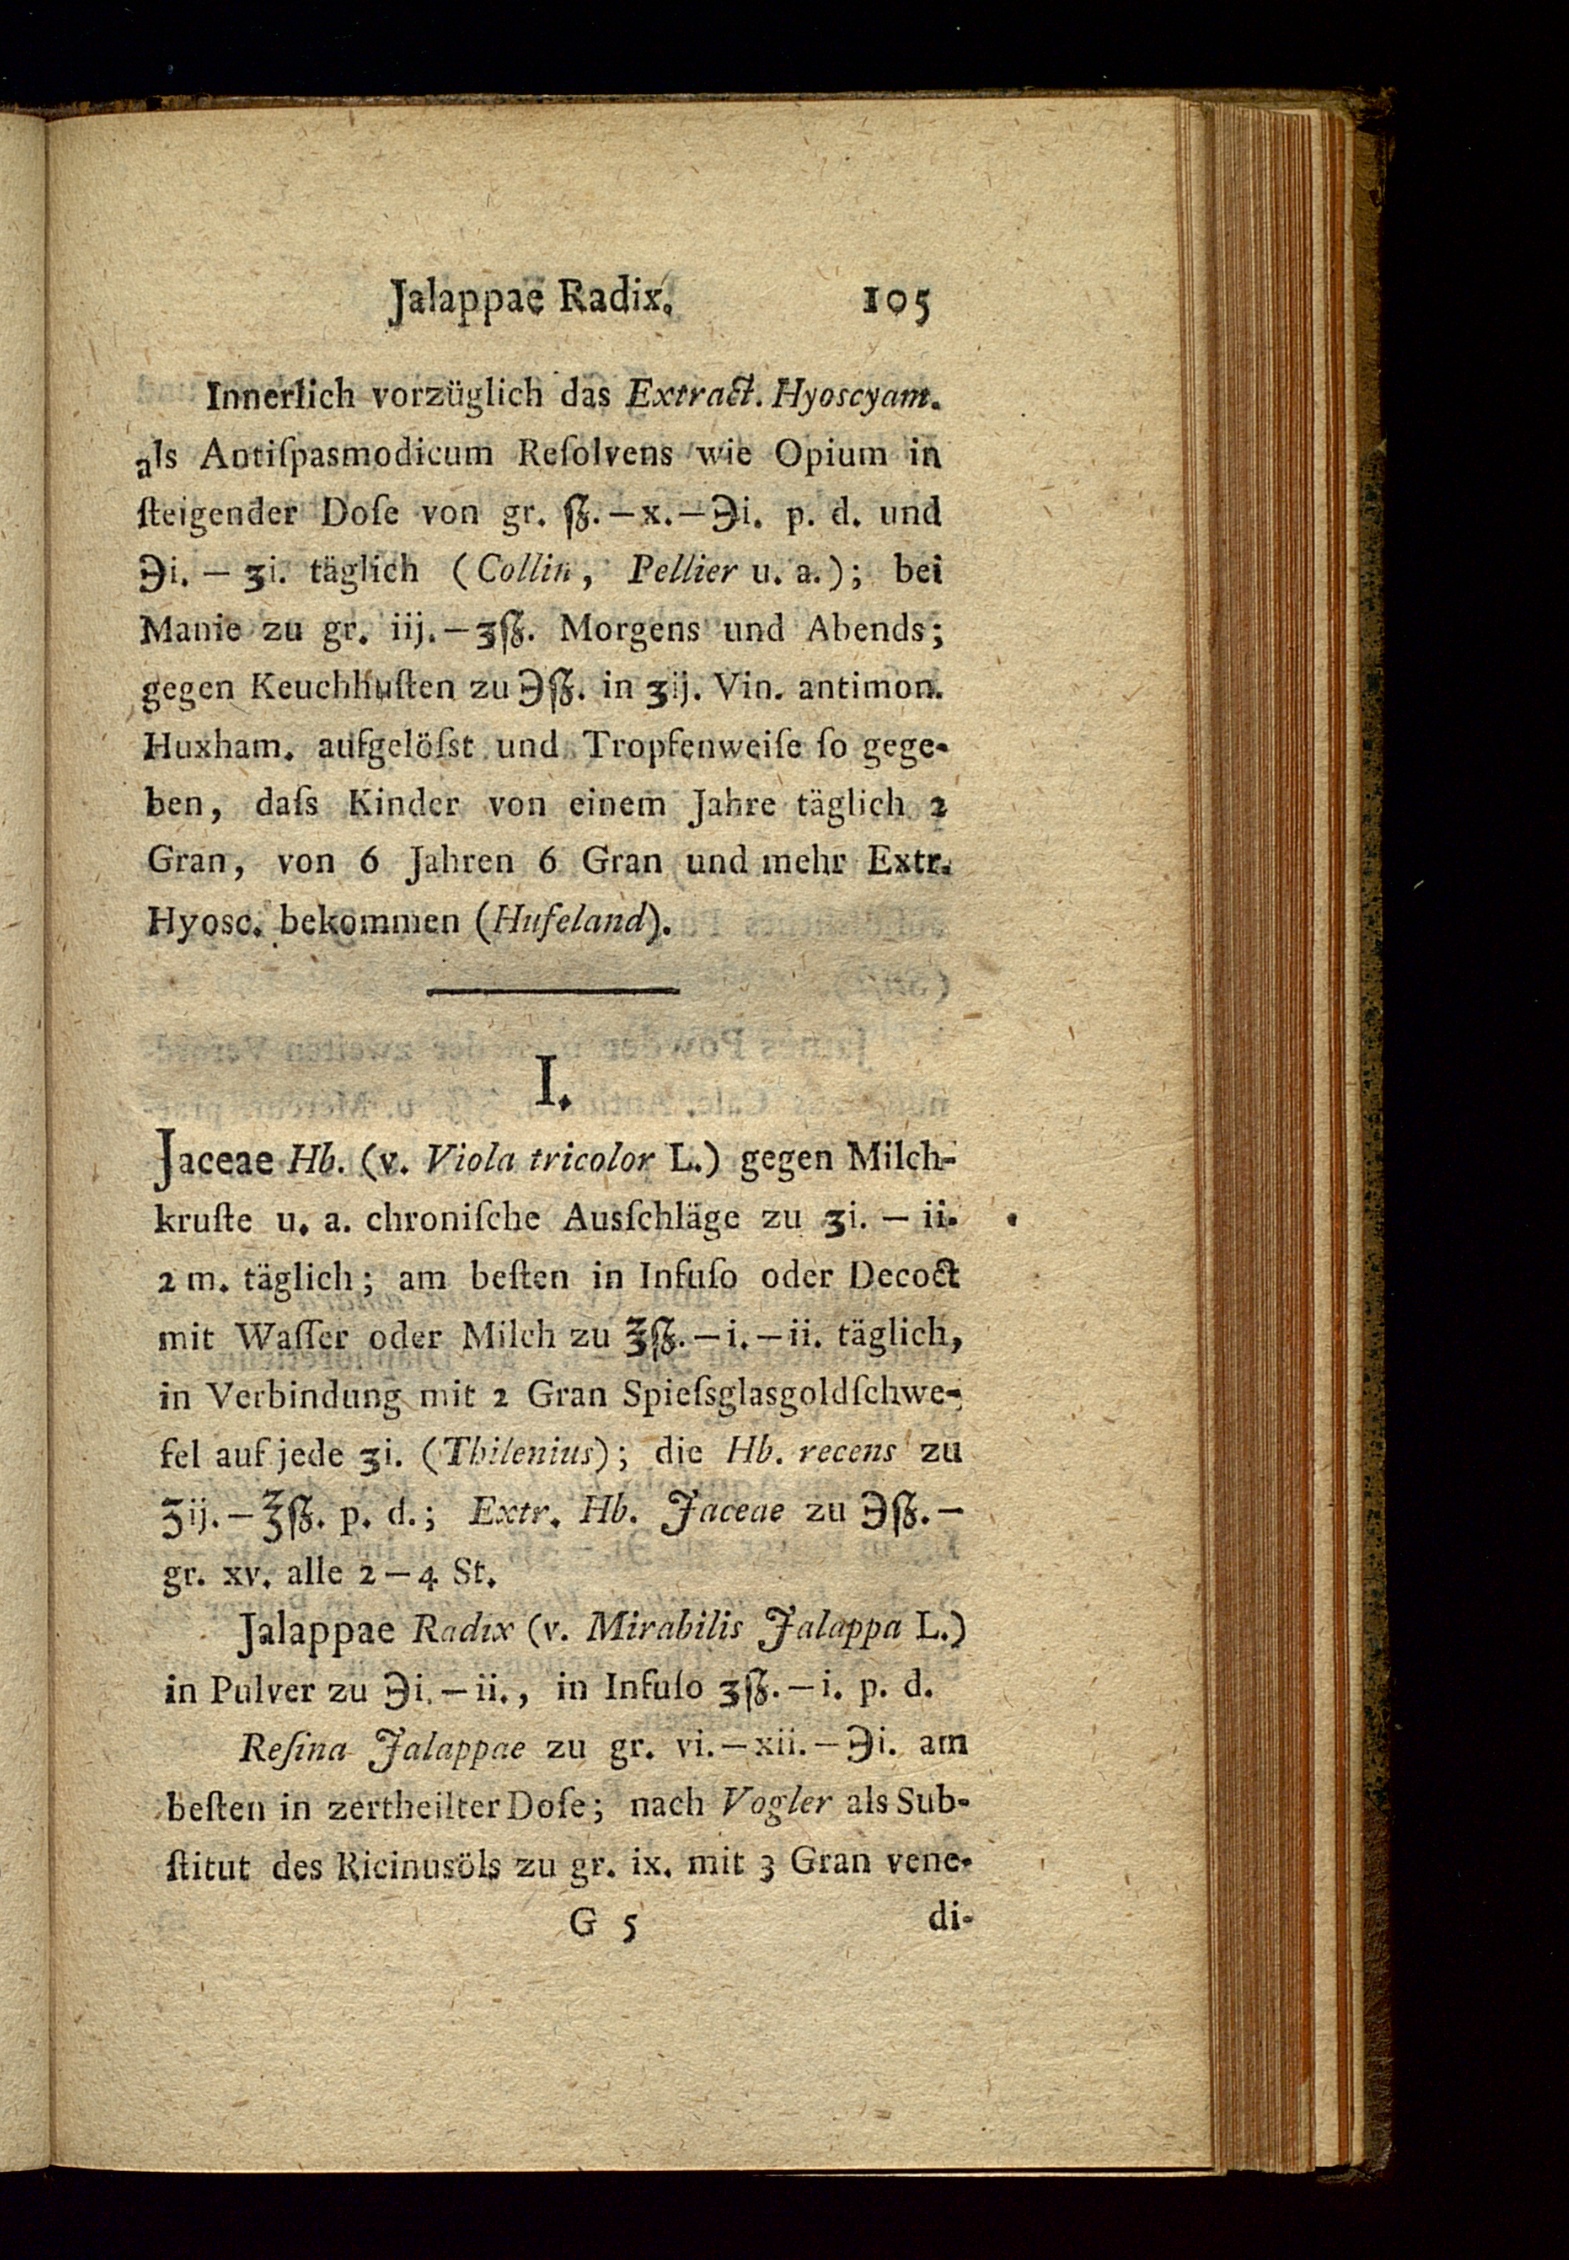 Jalappae Radix. 105
Innerlich vorzüglich das Extract. Hyoscyam.
als Antiſpasmodicum Reſolvens wie Opium in
ſteigender Doſe von gr. ſꝫ.—x.—℈i. p. d. und
℈i. — ʒi. täglich (Collin, Pellier u. a.); bei
Manie zu gr. iij.—ʒſꝫ. Morgens und Abends;
gegen Keuchhuſten zu ℈ſꝫ. in ʒij. Vin. antimon.
Huxham. aufgelöſst und Tropfenweiſe ſo gege-
ben, daſs Kinder von einem Jahre täglich 2
Gran, von 6 Jahren 6 Gran und mehr Extr.
Hyosc. bekommen (Hufeland).
I.
Jaceae Hb. (v. Viola tricolor L.) gegen Milch-
kruſte u. a. chroniſche Ausſchläge zu ʒi. — ii.
2 m. täglich; am beſten in Infuſo oder Decoct
mit Waſſer oder Milch zu ℥ſꝫ.—i.—ii. täglich,
in Verbindung mit 2 Gran Spieſsglasgoldſchwe-
fel auf jede ʒi. (Thilenius); die Hb. recens zu
ʒij.—℥ſꝫ. p. d.; Extr. Hb. Jaceae zu ℈ſꝫ.—
gr. xv. alle 2—4 St.
Jalappae Radix (v. Mirabilis Jalappa L.)
in Pulver zu ℈i.—ii., in Infuſo ʒſꝫ.—i. p. d.
Reſina Jalappae zu gr. vi.—xii.—℈i. am
beſten in zertheilter Doſe; nach Vogler als Sub-
ſtitut des Ricinusöls zu gr. ix. mit 3 Gran vene-
G 5 di-